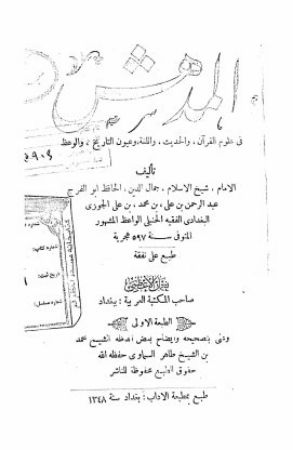 المدهش
في علوم القرآن، والحديث، واللغة، وعيون التاريخ، والوعظ
تأليف
الامام، شيخ الاسلام، جمال الدين، الحافظ ابو الفرج
عبد الرحمن بن علي، بن محمد، بن علي الجوزي
البغدادي الفقيه الحنبلي الواعظ المشهور
المتوفى سنة ٥٩٧ هجرية
طبع على نفقة
صاحب المكتبة العربية: ببغداد
الطبعة الاولى
وعني بتصحيحه وايضاح بعض الفاظه الشيخ محمد
بن الشيخ طاهر السماوي حفظه الله
حقوق الطبع محفوظة للناشر
طبع بمطبعة الآداب: بغداد سنة ١٣٤٨